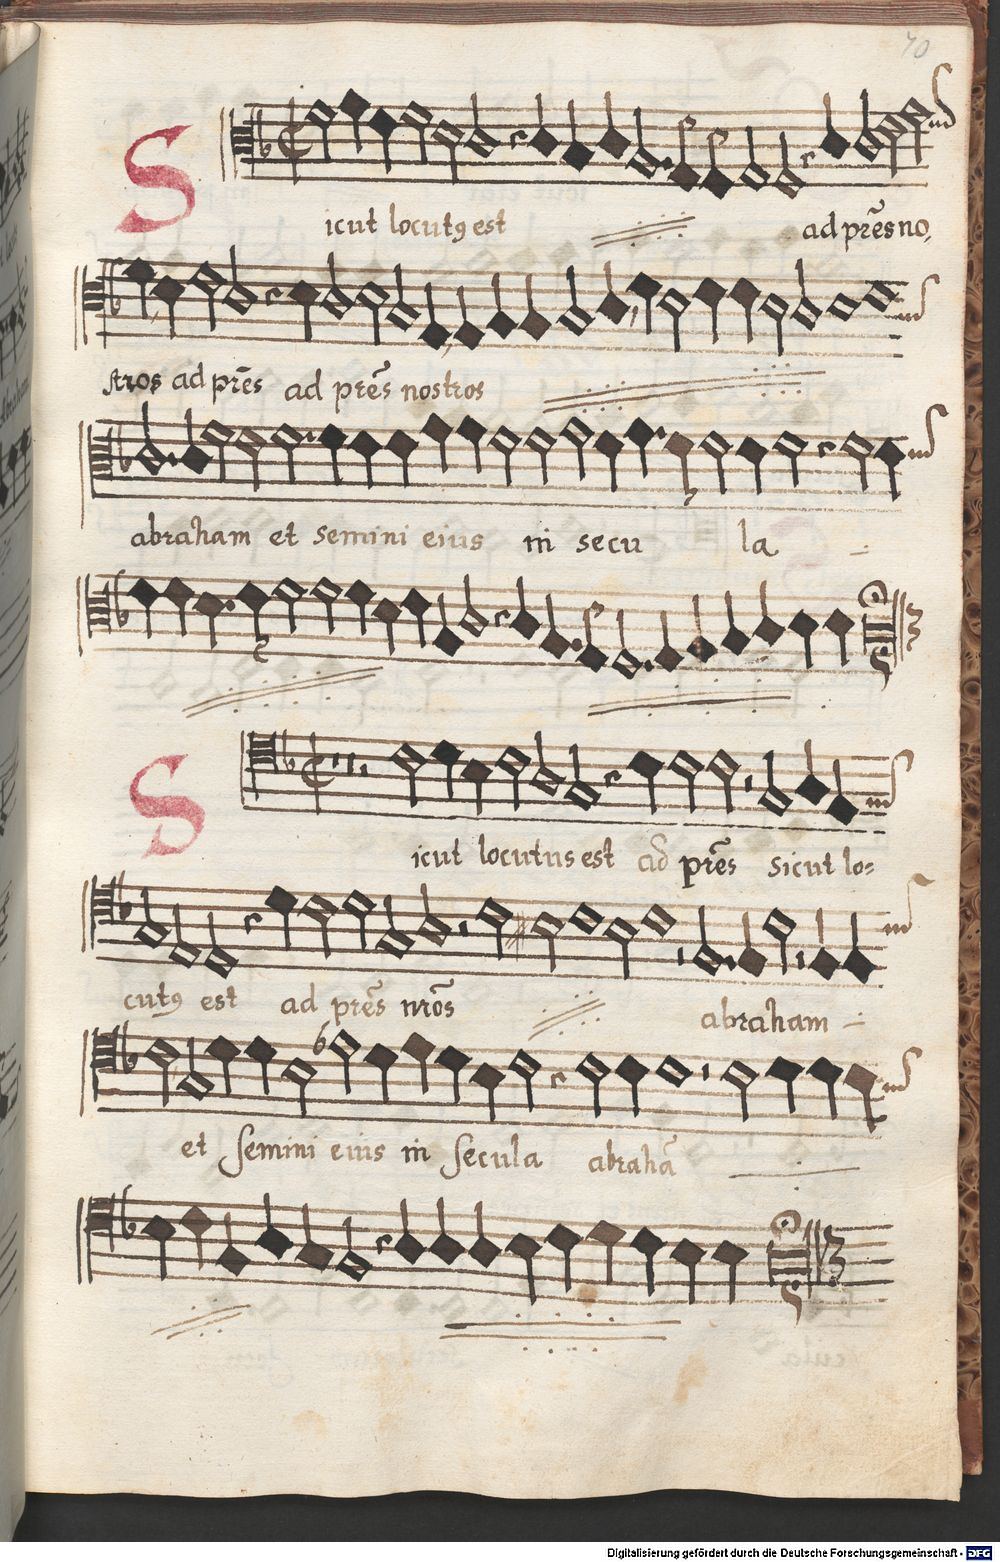 70
Sicut locutꝯ est ad pr̃es no,
stros ad pr̃es ad pr̃es nostros
abraham et semini eius in secu la
Sicut locutus est ad pr̃es sicut lo=
cutꝯ est ad pr̃es nrõs abraham
et semini eius in secula abrahã
Digitalisierung gefördert durch die Deutsche Forschungsgemeinschaft - DFG